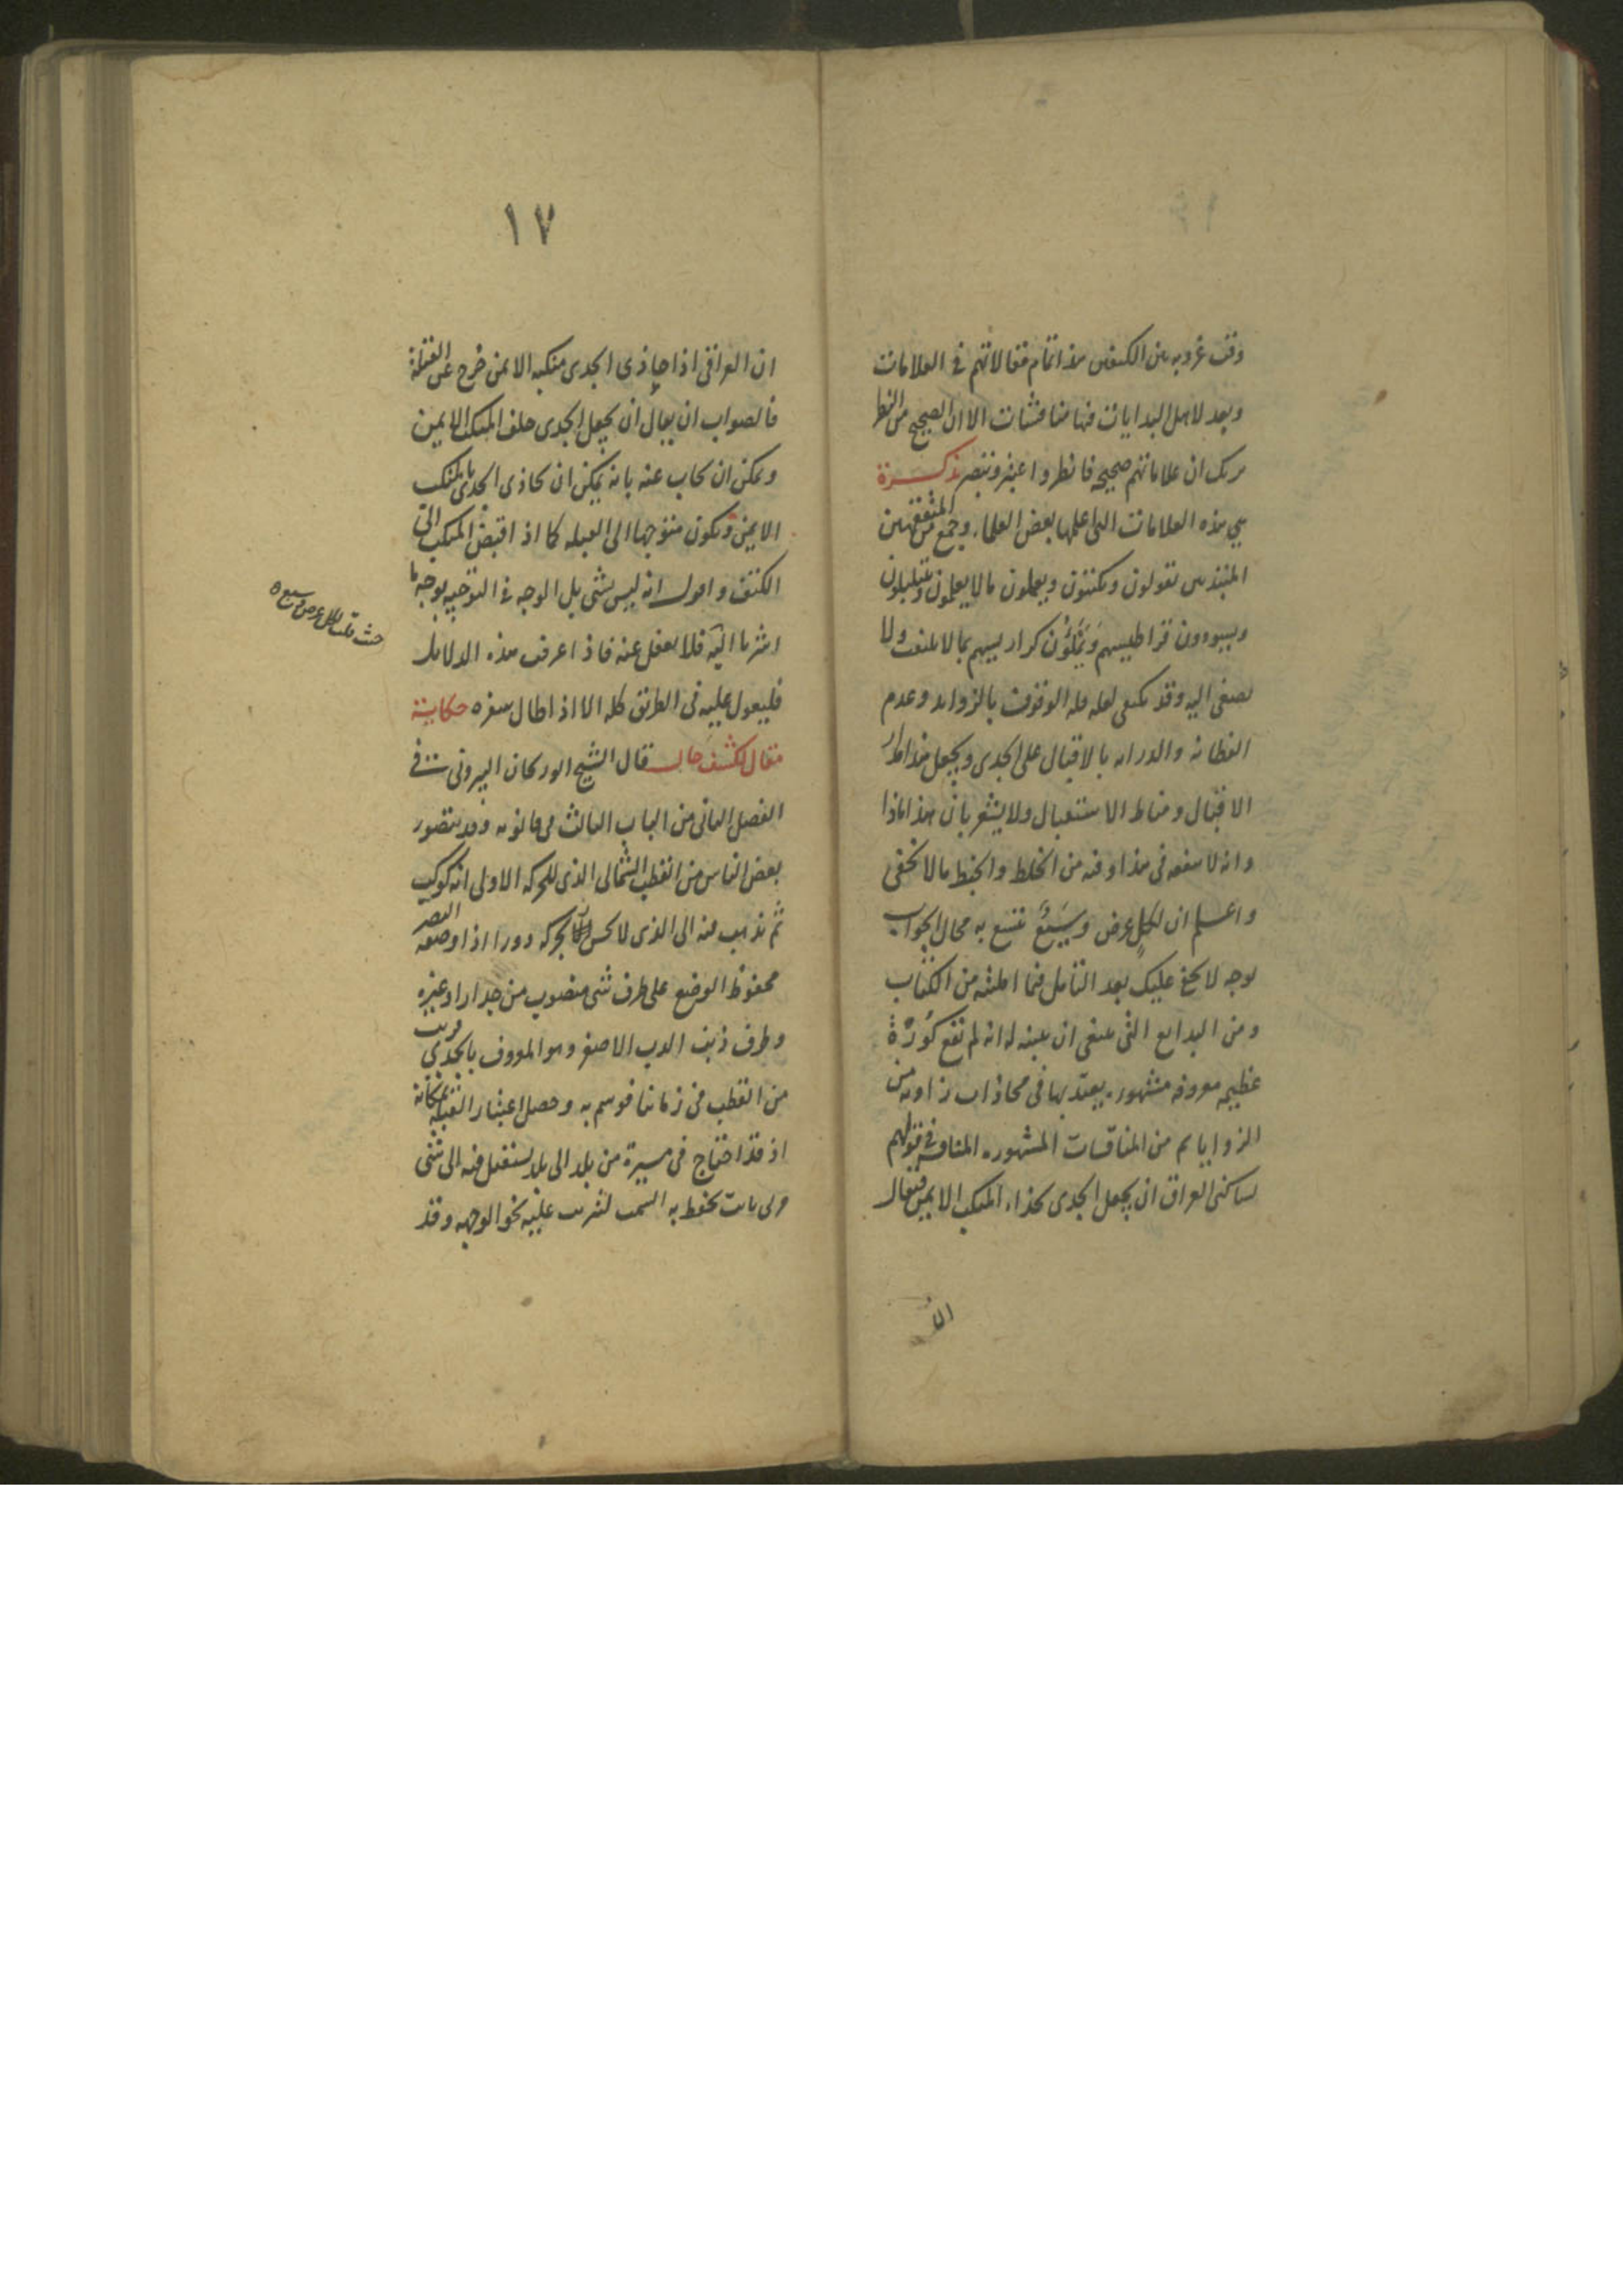 وقت غروبه بين الكتفين هذا تمام مقالاتهم فى العلامات
وبعد لاهل البدايات فيها مناقشات الا ان الصحيح من النظر
يريك ان علاماتهم صحيحه فانظر واعتبر وتبصر تذكرة
هى هذه العلامات التى اعلمها بعض العلماء وجمع من المتفقهين
يقولون ويكتبون ويعملون ما لا يعلمون
ويسودون قراطيسهم ويملؤن كراريسهم بما لا يلتفت ولا
يصغى اليه وقد يكتفى لعله قله الوقوف بالزوايد وعدم
الفطانه والدرايه بالاقبال على الجدى ويجعل هذا مدار
الاقبال ومناط الاستقبال ولا يشعر بان هذا ماذا
وانه لا ينفعه فى هذا وفيه من الخلط والخبط ما لا يخفى
واعلم ان لكل عرض وسيع تتسع به مجال الجواب
بوجه لا يخفى عليك بعد التامل فيما امليته من الكتاب
ومن البدايع التى ينبغى ان ينبه له انه لم تقع كورة
عظيمه معروفه مشهوره يعتد بها فى محاذات زاويه من
الزوايا ثم من المناقشات المشهوره المناقشه فى قولهم
لساكنى العراق ان يجعل الجدى بحذاء المنكب الايمن فيقال
ان
١٧
ان العراقى اذا حاذى الجدى منكبه الايمن خرج عن القبلة
فالصواب ان يقال ان يجعل الجدى خلف المنكب الايمن
ويمكن ان يجاب عنه بانه يمكن ان يحاذى الجدى بالمنكب
الايمن ويكون متوجها الى القبله كما اذا قبض المنكب الى
الكتف واقول انه ليس بشى بل الوجه فى التوجيه بوجه ما
اشرنا اليه فلا يغفل عنه فاذا عرفت هذه الدلايل
فليعول عليه فى الطريق كله الا اذا طال سفره حكاية
مقال لكشف حال قال الشيخ ابو ريحان البيرونى فى
الفصل الثانى من الباب الثالث من قانونه وقد يتصور
بعض الناس من القطب الشمالى الذى للحركه الاولى انه كوكب
ثم يذهب منه الى الذى لا يحس له بحركه دورا اذا وضعه البصر
محفوظ الوضع على طرف شى منصوب من جدار او غيره
وطرف ذنب الدب الاصغر وهو المعروف بالجدى قريب
من القطب فى زماننا فوسم به وحصل اعتبار القبلة بمكانه
اذ قد احتاج فى مسيرة من بلد الى بلد يستقبل فيه الى شى
ثابت يحفظ به السمت ليترتب عليه نحو الوجهه وقد
حيث قلت لكل عرض وسيع